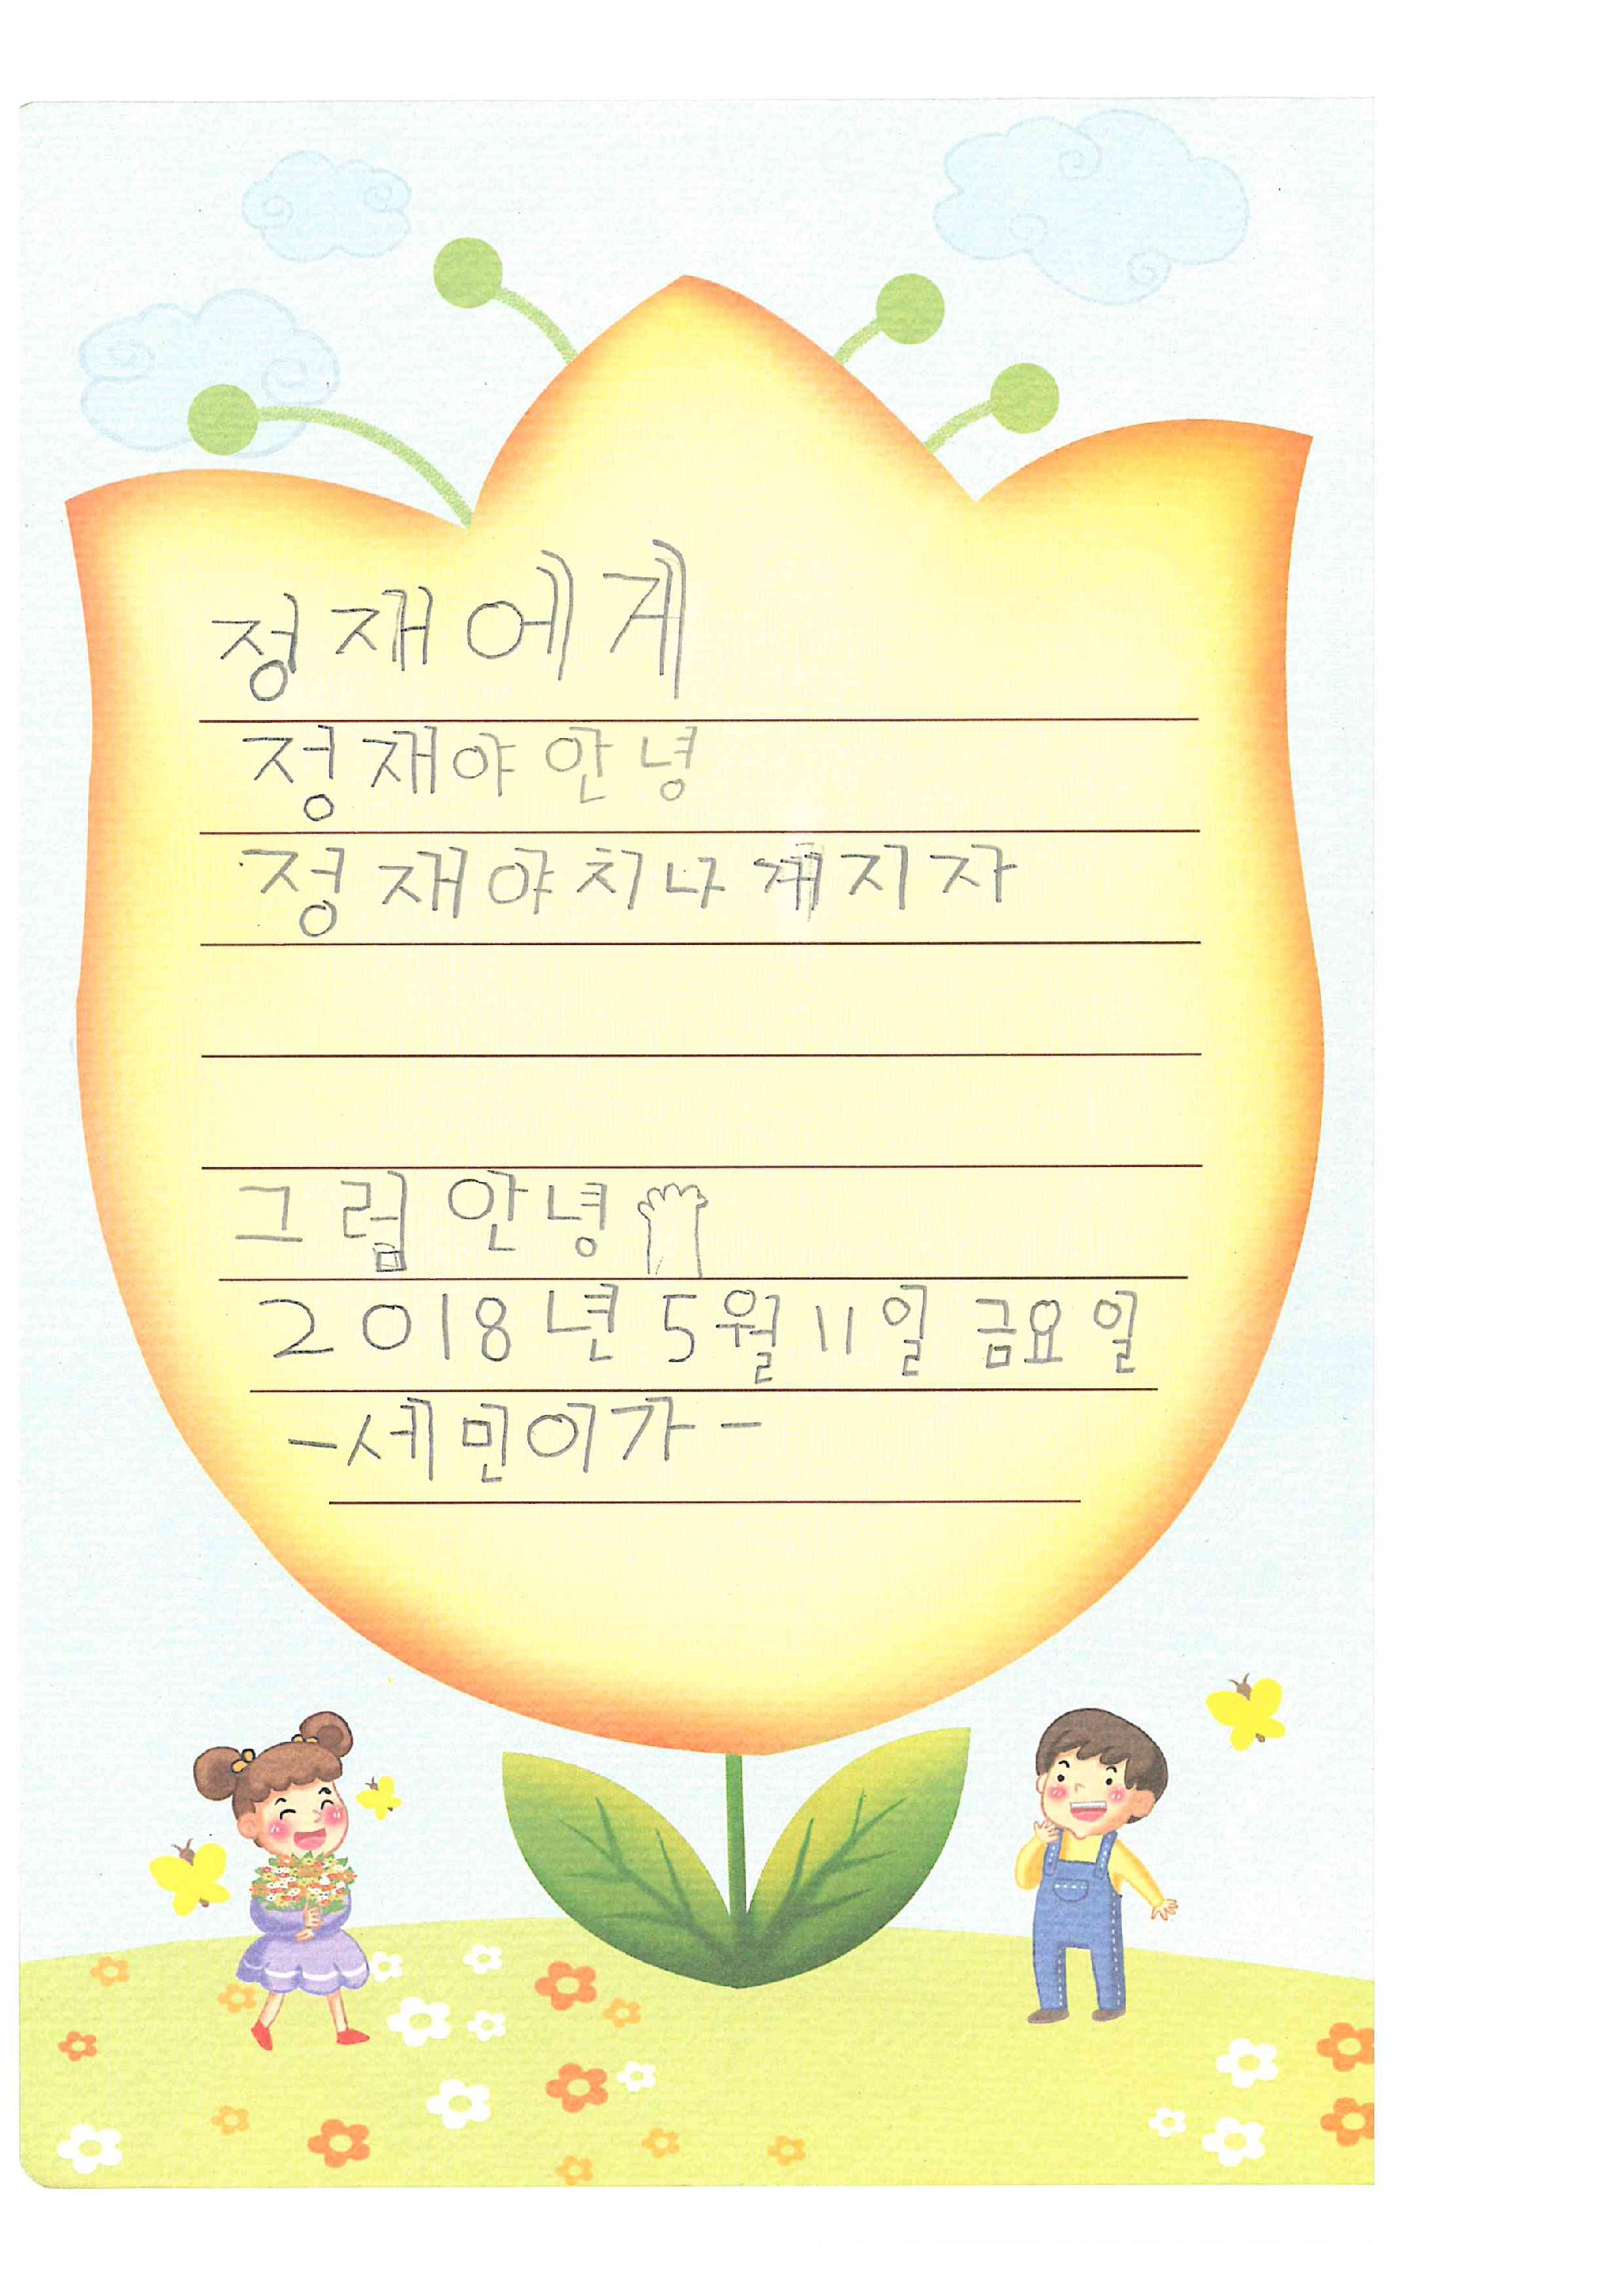 정재에게
정재야 안녕
정재야 치나게지자
그럼 안녕
2018년 5월 11일 금요일
-세민이가-